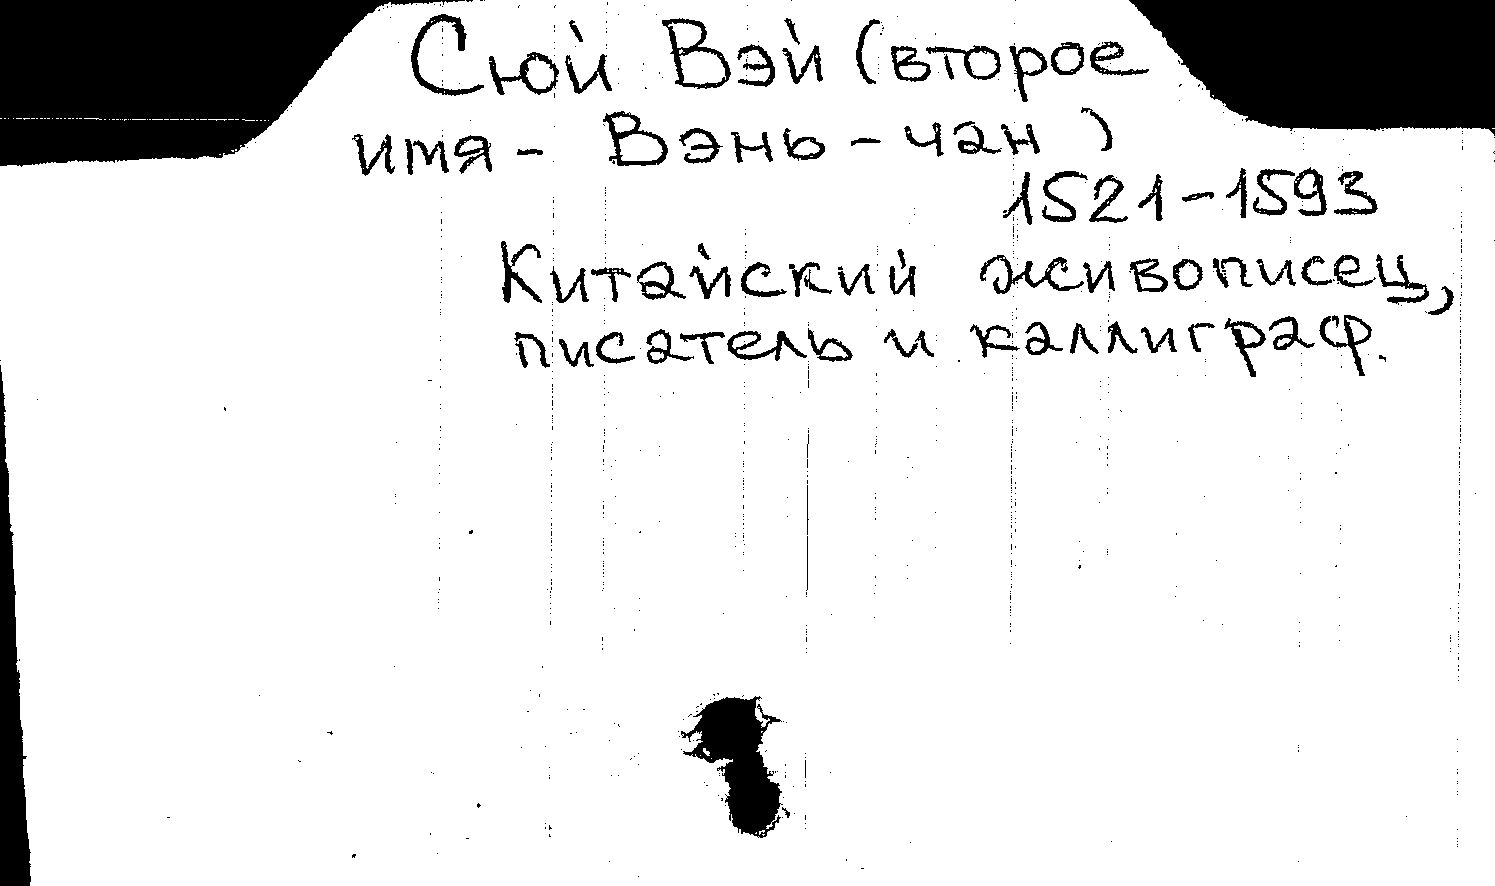 Сюй Вэй (второе
имя - Вэнь - чан)
1521-1593
Китайский живописец,
писатель и каллиграф.